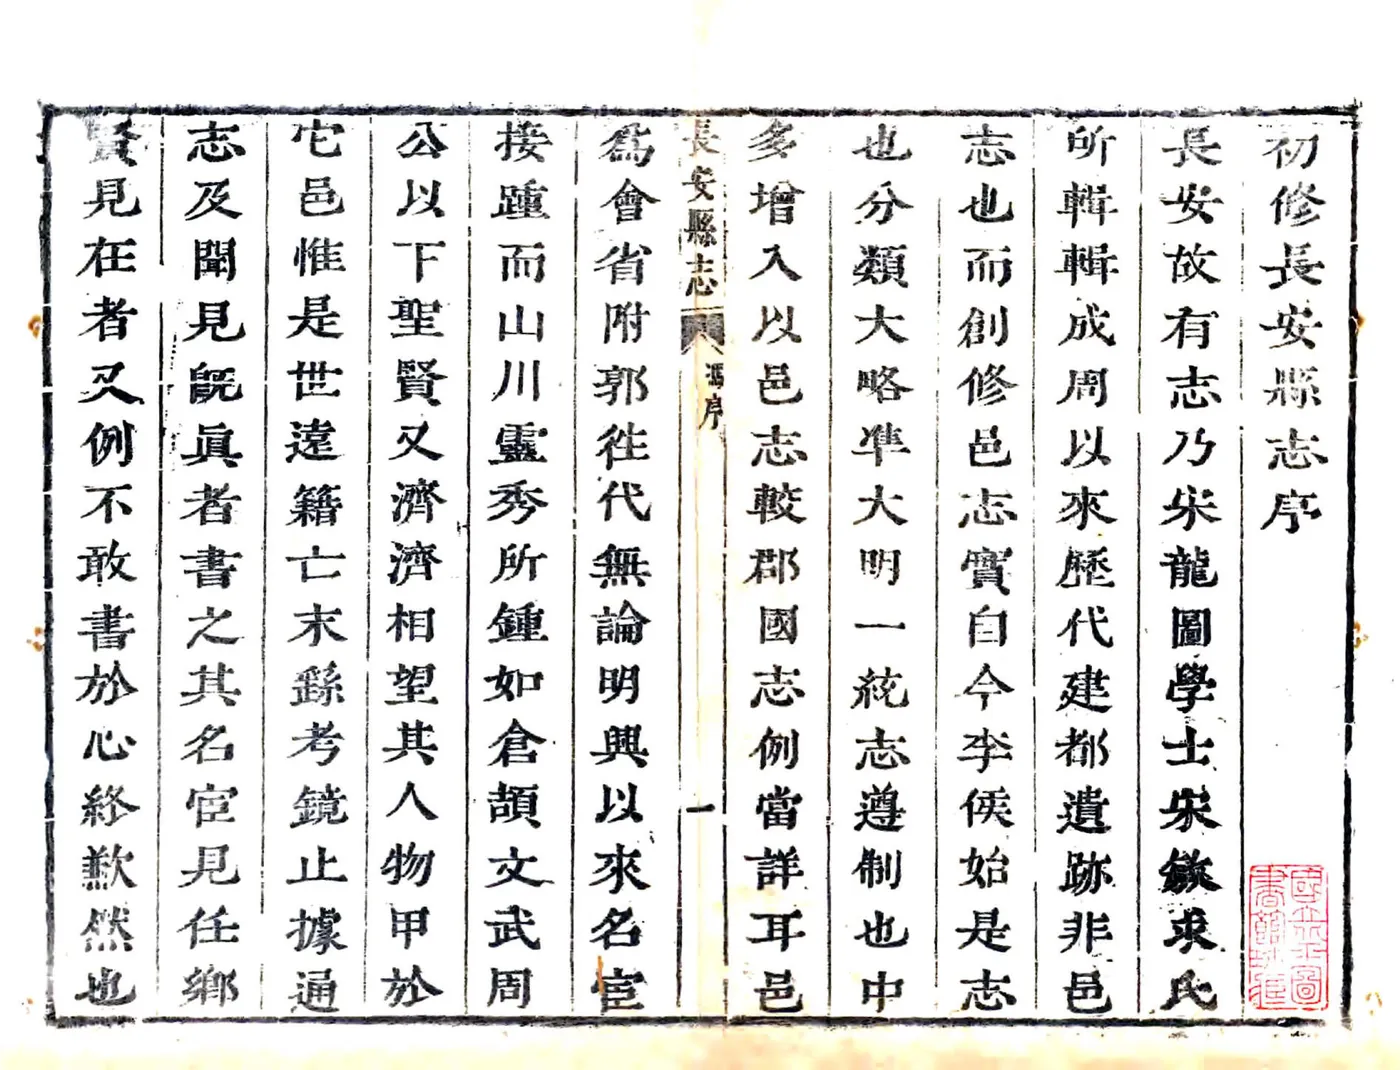 初修長安縣志序
長安故有志乃宋龍圖學士宋敏求氏
所輯輯成周以來歷代建都遺跡非邑
志也而創修邑志實自今李侯始是志
也分類大略準大明一統志遵制也中
多增入以邑志較郡國志例當詳耳邑
長安縣志 馮序 一
爲會省附郭徃代無論明興以來名宦
接踵而山川靈秀所鍾如倉頡文武周
公以下聖賢又濟濟相望其人物甲於
它邑惟是世遠籍亡末繇考鏡止據通
志及聞見旣眞者書之其名宦見任鄉
賢見在者又例不敢書於心終歉然也